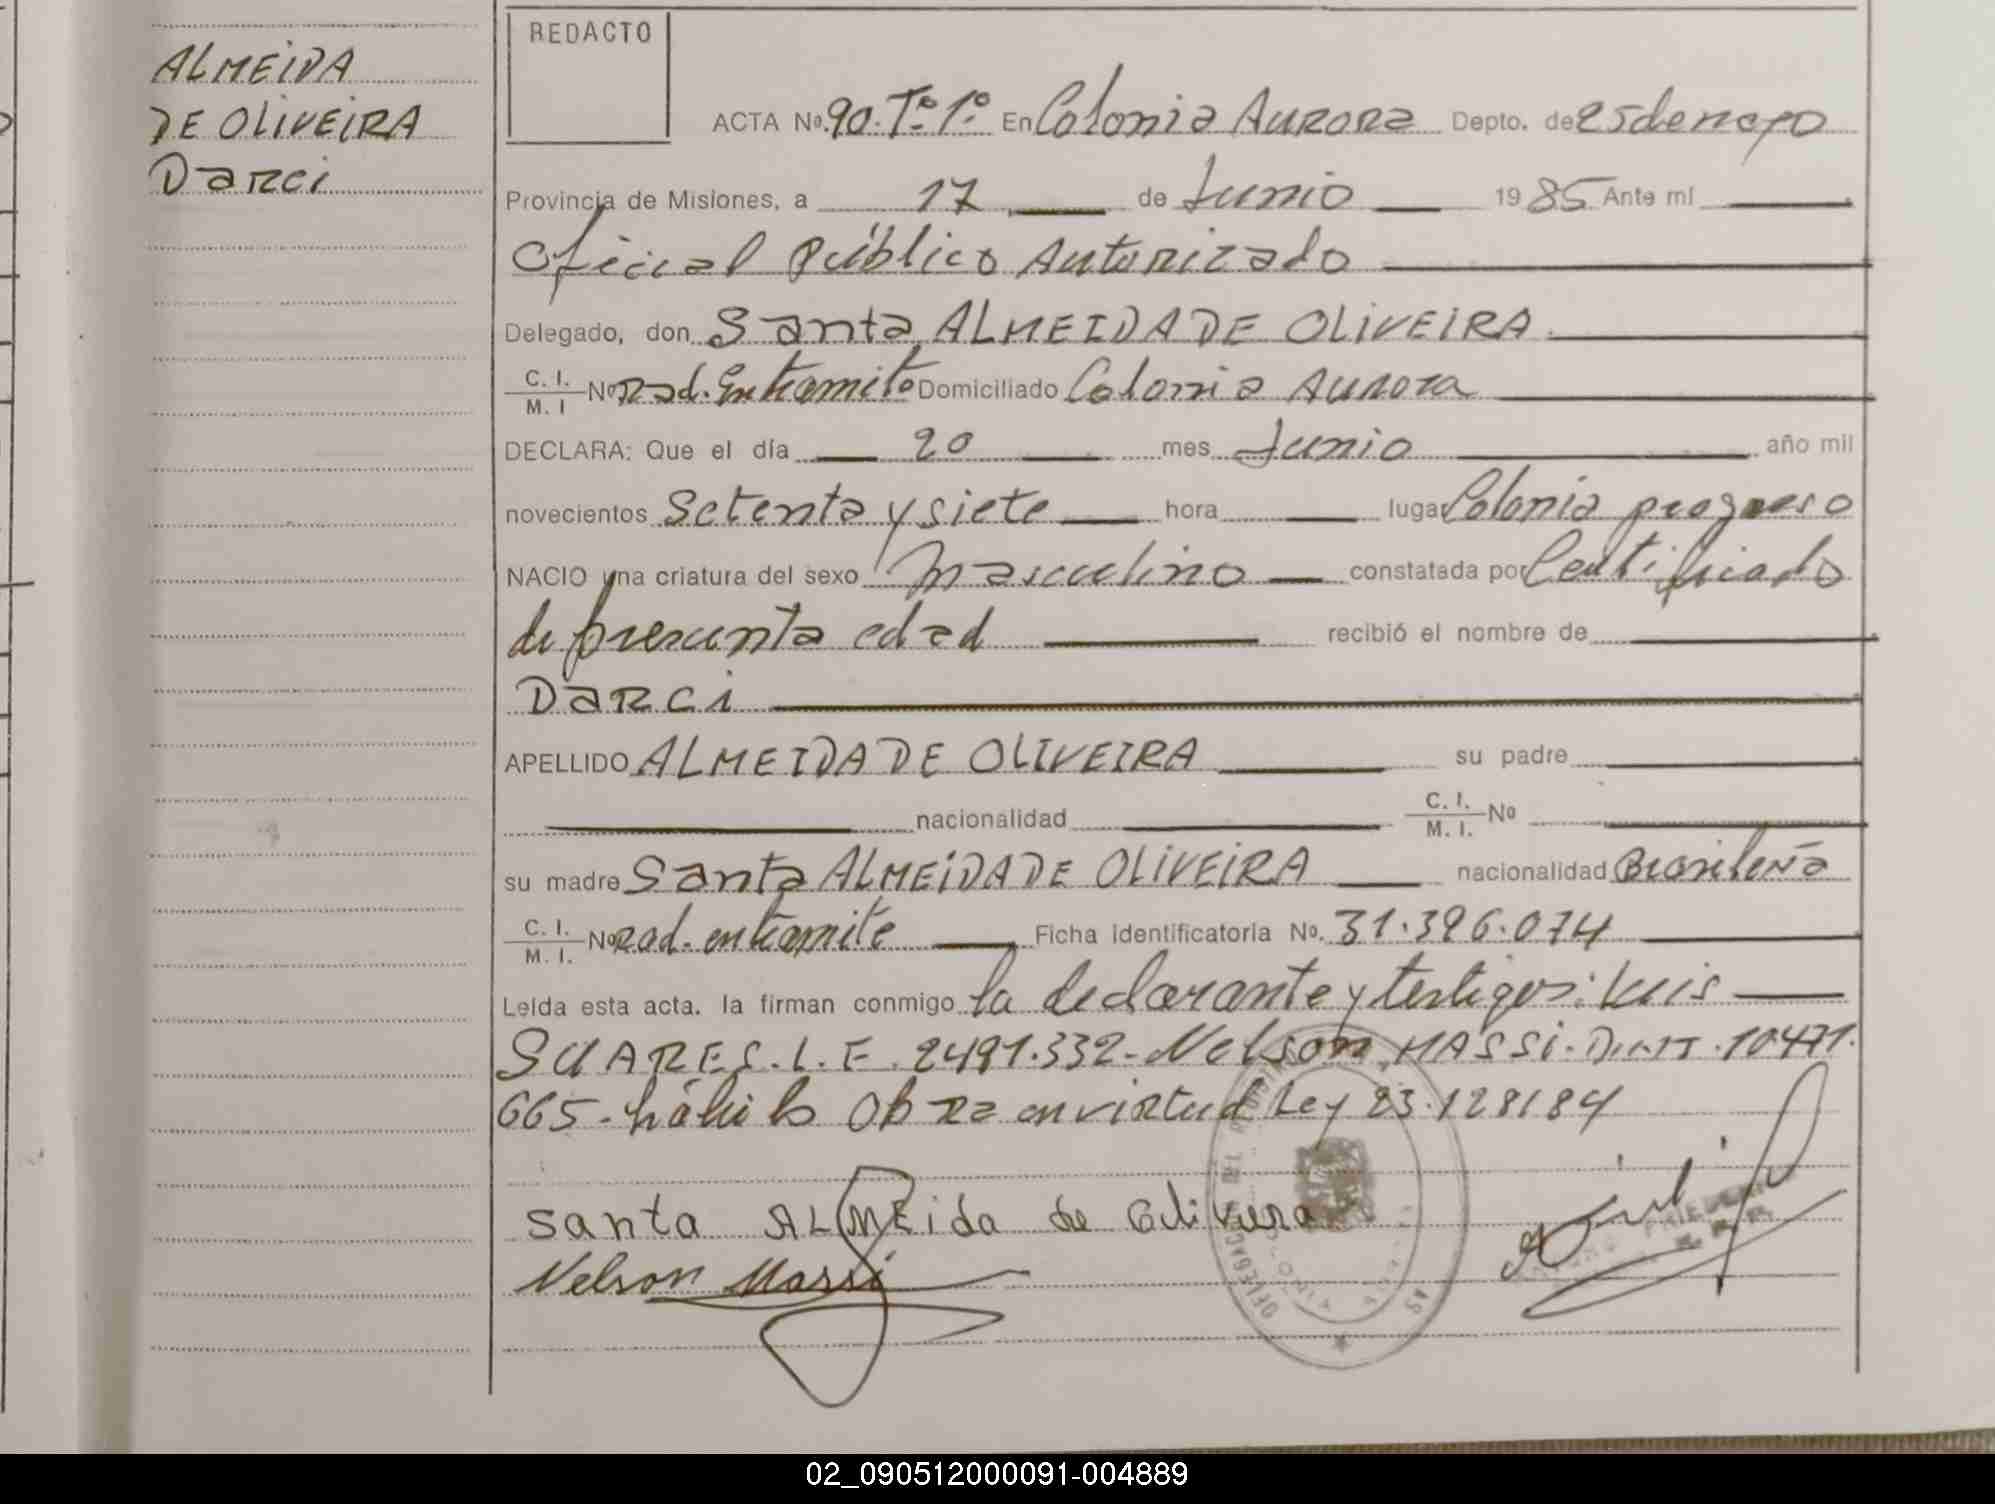 ALMEIDA
DE OLIVEIRA
Darci
REDACTO
ACTA No. 90. Tº. 1º. En Colonia Aurora Depto. de 25 de mayo
Provincia de Misiones, a 17 de Junio 1985 Ante mí
Oficial Público Autorizado
Delegado, don Santa ALMEIDA DE OLIVEIRA.
C. I. / M. I No Rad. En tramite Domiciliado Colonia Aurora
DECLARA: Que el día 20 mes Junio año mil
novecientos Setenta y siete hora lugar Colonia progreso
NACIO una criatura del sexo Masculino constatada por Certificado
de presunta edad recibió el nombre de
Darci
APELLIDO ALMEIDA DE OLIVEIRA su padre
nacionalidad C. I. / M. I. No
su madre Santa ALMEIDA DE OLIVEIRA nacionalidad Brasileña
C. I. / M. I. No Rad. en tramite Ficha identificatoria No. 31.396.074
Leída esta acta, la firman conmigo la declarante y testigos: Luis
SUARES. L. E. 2491.332- Nelson MASSI. D.N.I. 10471.
665- hábiles Obra en virtud Ley 23.128/84
Santa ALMEida de Olivera
Nelson Massi
02_090512000091-004889